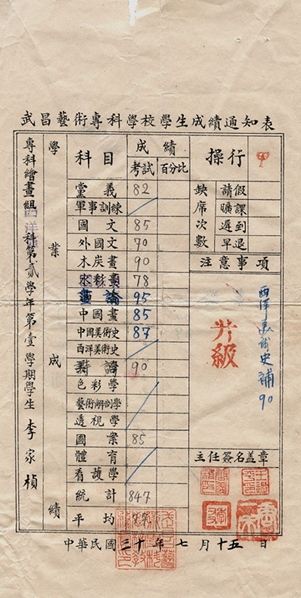 武昌藝術專科學校學生成績通知表
專科繪畫組 科第貳學年第壹學期學生 李家楨
學業成績
科目 成績 操行
考試 百分比
黨義 82
軍事訓練
國文 85
外國文 70
木炭畫 90
水彩畫 78
畫論 95
中國畫 85
中國美術史 87
西洋美術史
90
色彩學
藝術解剖學
透視學
圖案 85
體育
看護學
統計 847
平均
缺席次數 請假 曠課 遲到 早退
注意事項
升級
補90
主任簽名蓋章
中華民國三十年七月十五日